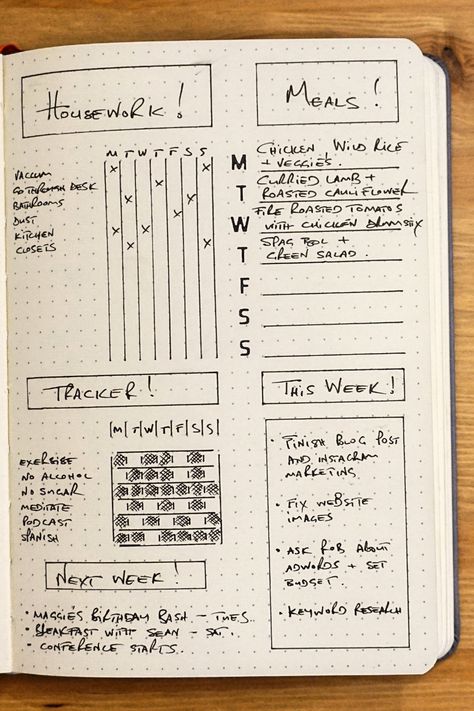 HOUSEWORK!
M T W T F S S
VACUUM
GO THROUGH DESK
BATHROOMS
DUST
KITCHEN
CLOSETS
MEALS!
M CHICKEN, WILD RICE
+ VEGGIES.
T CURRIED LAMB +
ROASTED CAULIFLOWER
W FIRE ROASTED TOMATOS
WITH CHICKEN DRUMSTIX
T SPAG BOL +
GREEN SALAD.
F
S
S
TRACKER!
M T W T F S S
EXERCISE
NO ALCOHOL
NO SUGAR
MEDITATE
PODCAST
SPANISH
THIS WEEK!
• FINISH BLOG POST
AND INSTAGRAM
MARKETING
• FIX WEBSITE
IMAGES
• ASK ROB ABOUT
ADWORDS + SET
BUDGET.
• KEYWORD RESEARCH
NEXT WEEK!
• MAGGIES BIRTHDAY BASH - TUES.
• BREAKFAST WITH SEAN - SAT.
• CONFERENCE STARTS.